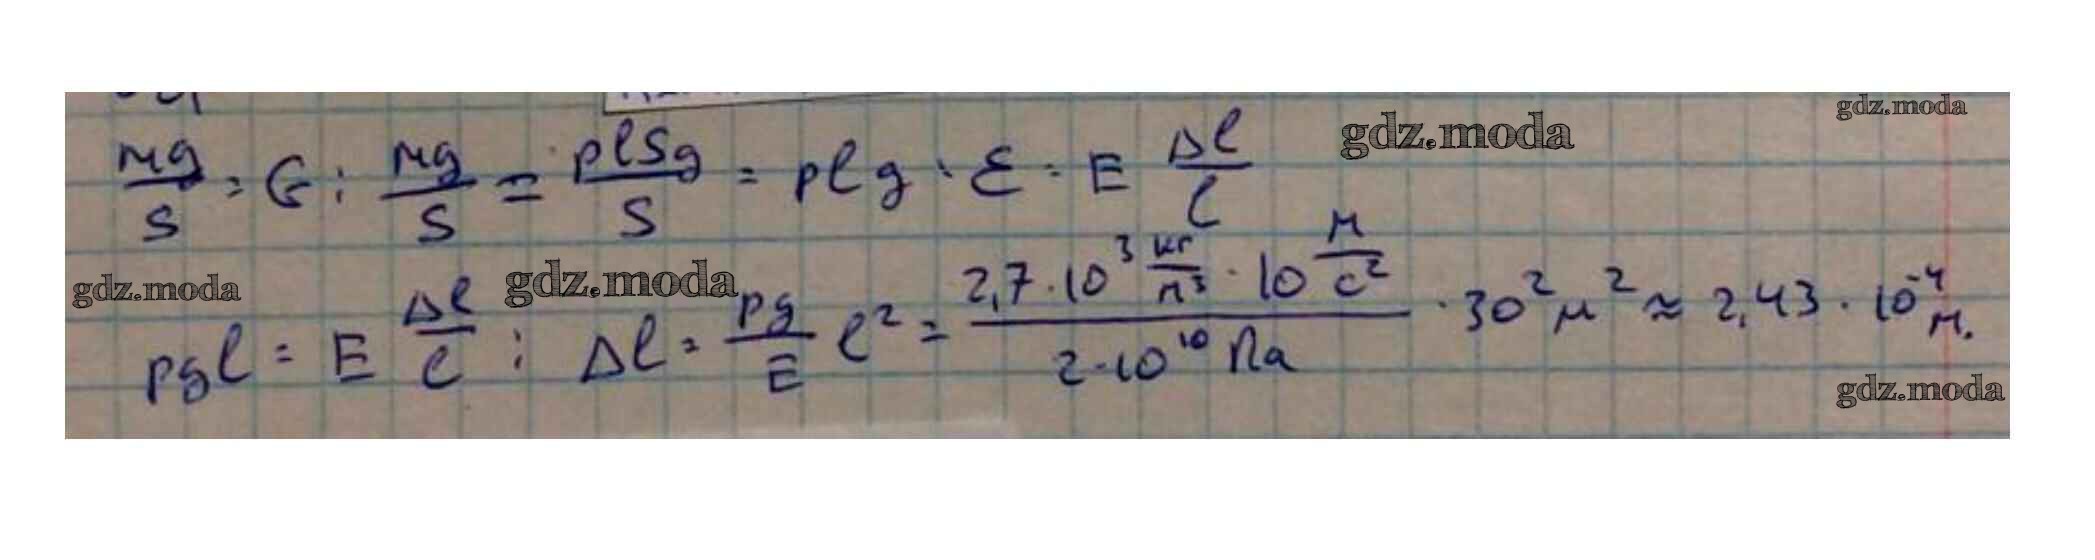 gdz.moda
gdz.moda
mg/S = G; mg/S = ρlSg/S = ρlg; Ɛ = E Δl/l
gdz.moda
gdz.moda
ρgl = E Δl/l; Δl = ρg/E l² = 2,7·10³ кг/м³ · 10 м/с² / 2·10¹⁰ Па · 30² м² ≈ 2,43 · 10⁻⁴ м.
gdz.moda